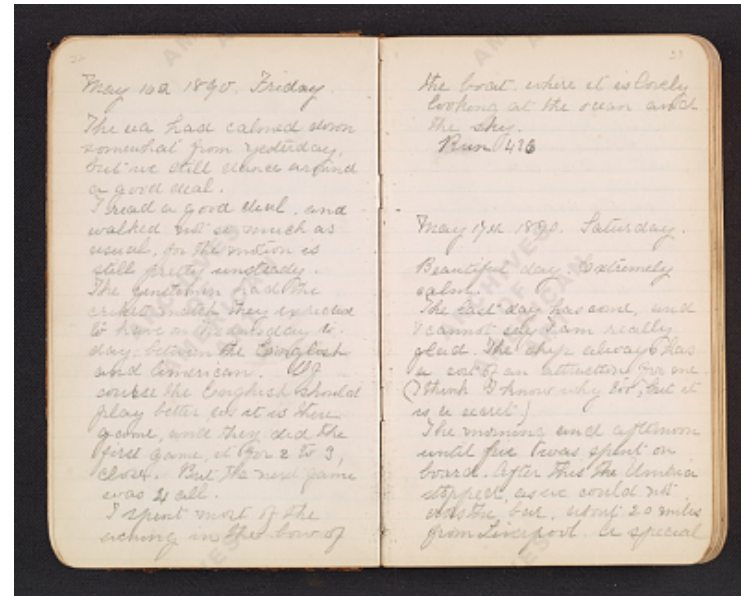 22
May 16th 1890. Friday.
The sea had calmed down
somewhat from yesterday,
but we still dance around
a good deal.
I read a good deal, and
walked not so much as
usual, for the motion is
still pretty unsteady.
The gentlemen had the
cricket match they expected
to have on Thursday to-
day, between the English
and American. Of
course the English should
play better as it is their
game, and they did the
first game, it for 2 to 3,
close. But the next game
was 4 all.
I spent most of the
evening in the bow of
23
the boat, where it is lovely
looking at the ocean and
the sky.
Run 416
May 17th 1890. Saturday.
Beautiful day. Extremely
calm.
The last day has come, and
I cannot say I am really
glad. The ship always has
a sort of an attraction for me.
(I think I know why too, but it
is a secret)
The morning and afternoon
until five was spent on
board. After this the Umbria
stopped, as we could not
cross the bar, about 20 miles
from Liverpool. a special
ARCHIVES OF AMERICAN